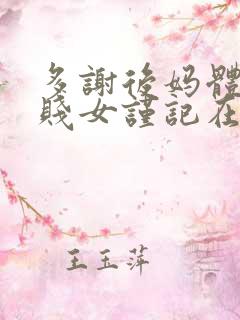 多謝後妈體
賤女謹記在
王玉萍